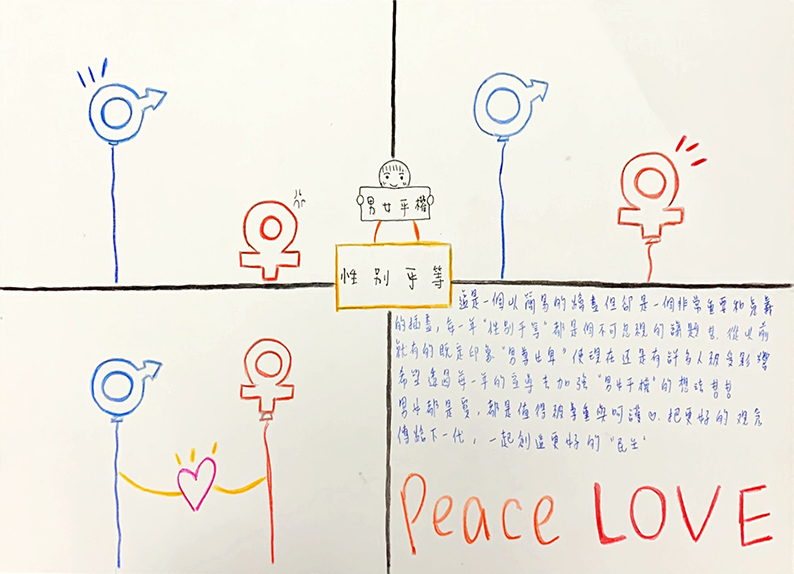 男女平權
性別平等
這是一個以簡易的繪畫但卻是一個非常重要和意義
的插畫，每一年"性別平等"都是個不可忽視的議題，從以前
就有的既定印象"男尊女卑"使現在還是有許多人被受影響
希望透過每一年的宣導去加強"男女平權"的想法
男女都是愛，都是值得被尊重與呵護♡.把更好的觀念
傳給下一代，一起創造更好的"民生"
Peace LOVE